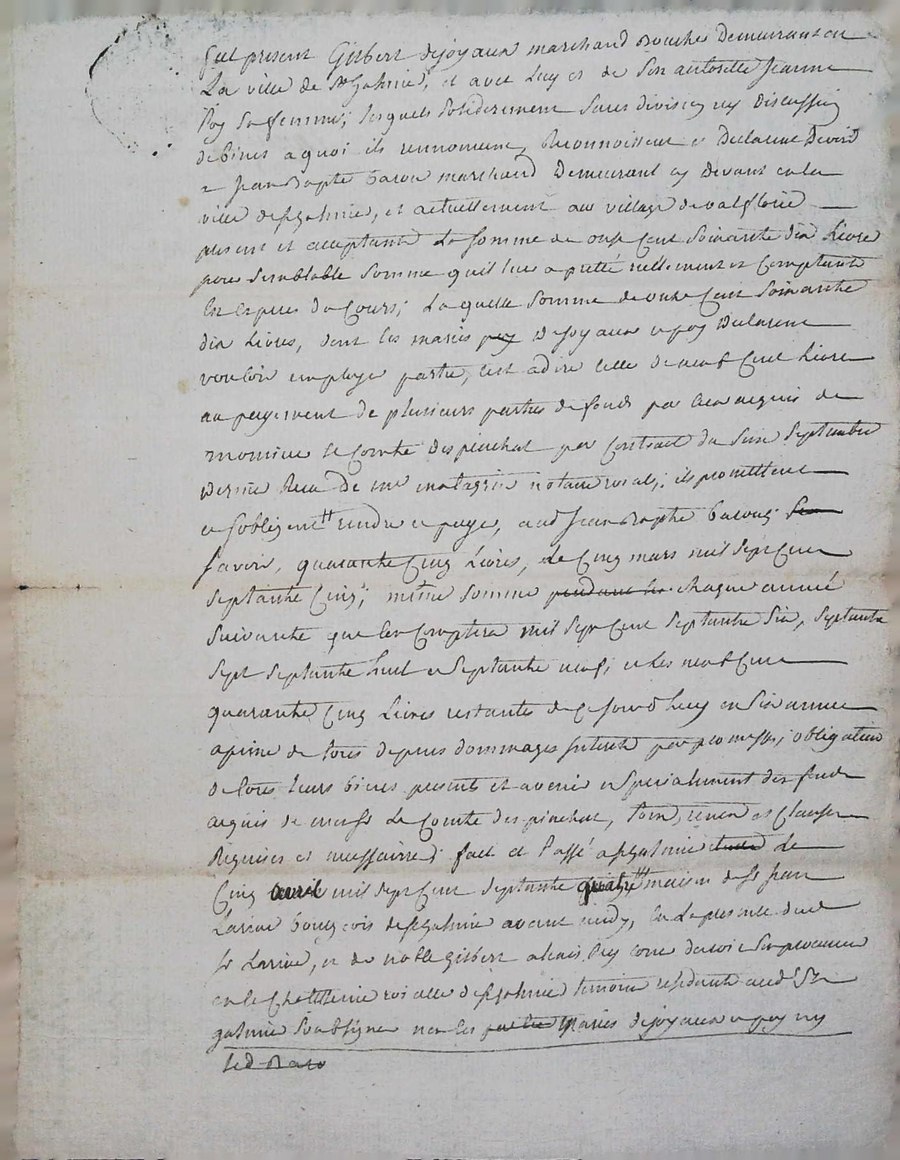 fut present Gilbert dejoyaux marchand Boucher Demeurant en
La ville de St Galmier, et avec Luy et de Son autorité Jeanne
Poy Sa femme; lesquels solidairement Sans division ny Discussion
de biens a quoi ils renoncent, Reconnoissent et Declarent Devoir
a Jean Bapte marchand Demeurant cy Devant en la
ville de St galmier, et actuellement au village de
present et acceptant La Somme de onze Cent Soixante dix Livres
pour Semblable Somme qu'il leur a pretté reellement et Comptant
En Especes du Cours; La quelle Somme de onze Cent Soixante
dix Livres, dont les maries poy Dejoyaux et poy Declarent
vouloir employe partie, C'est a dire Celle de neuf Cent Livres
au payement de plusieurs parties de fonds par eux acquis de
monsieur le Comte despinchal par Contract du Seize Septembre
Dernier Recu De me notaire roial; ils promettent
et Sobligent rendre et paye, aud Jean Bapte
Savoir, quarante Cinq Livres, Le Cinq mars mil Sept Cent
Septante Cinq; même Somme pendant les chaque année
Suivante que l'on Comptera mil Sept Cent Septante Six, Septante
Sept Septante huit et Septante neuf, et Les neuf Cent
quarante Cinq Livres restante de Ce jourd'huy en Six année
a peine de tous depens dommages Interets par promesse, obligation
De tous Leurs biens presents et avenir et Specialement des fonds
acquis de monsr Le Comte despinchal, Soum, renon et Clauses
Requises et necessaires; fait et Passé a St galmier Le
Cinq avril mil Sept Cent Septante quatre maison de Sr Jean
Larive bourgeois de St galmier avant midy, En La presence dud
Sr Larive, et de noble Gilbert procureur
en la Chatellenie roialle de St galmier temoins residents aud St
galmier Soubsignes non les maries dejoyaux et poy ny
led